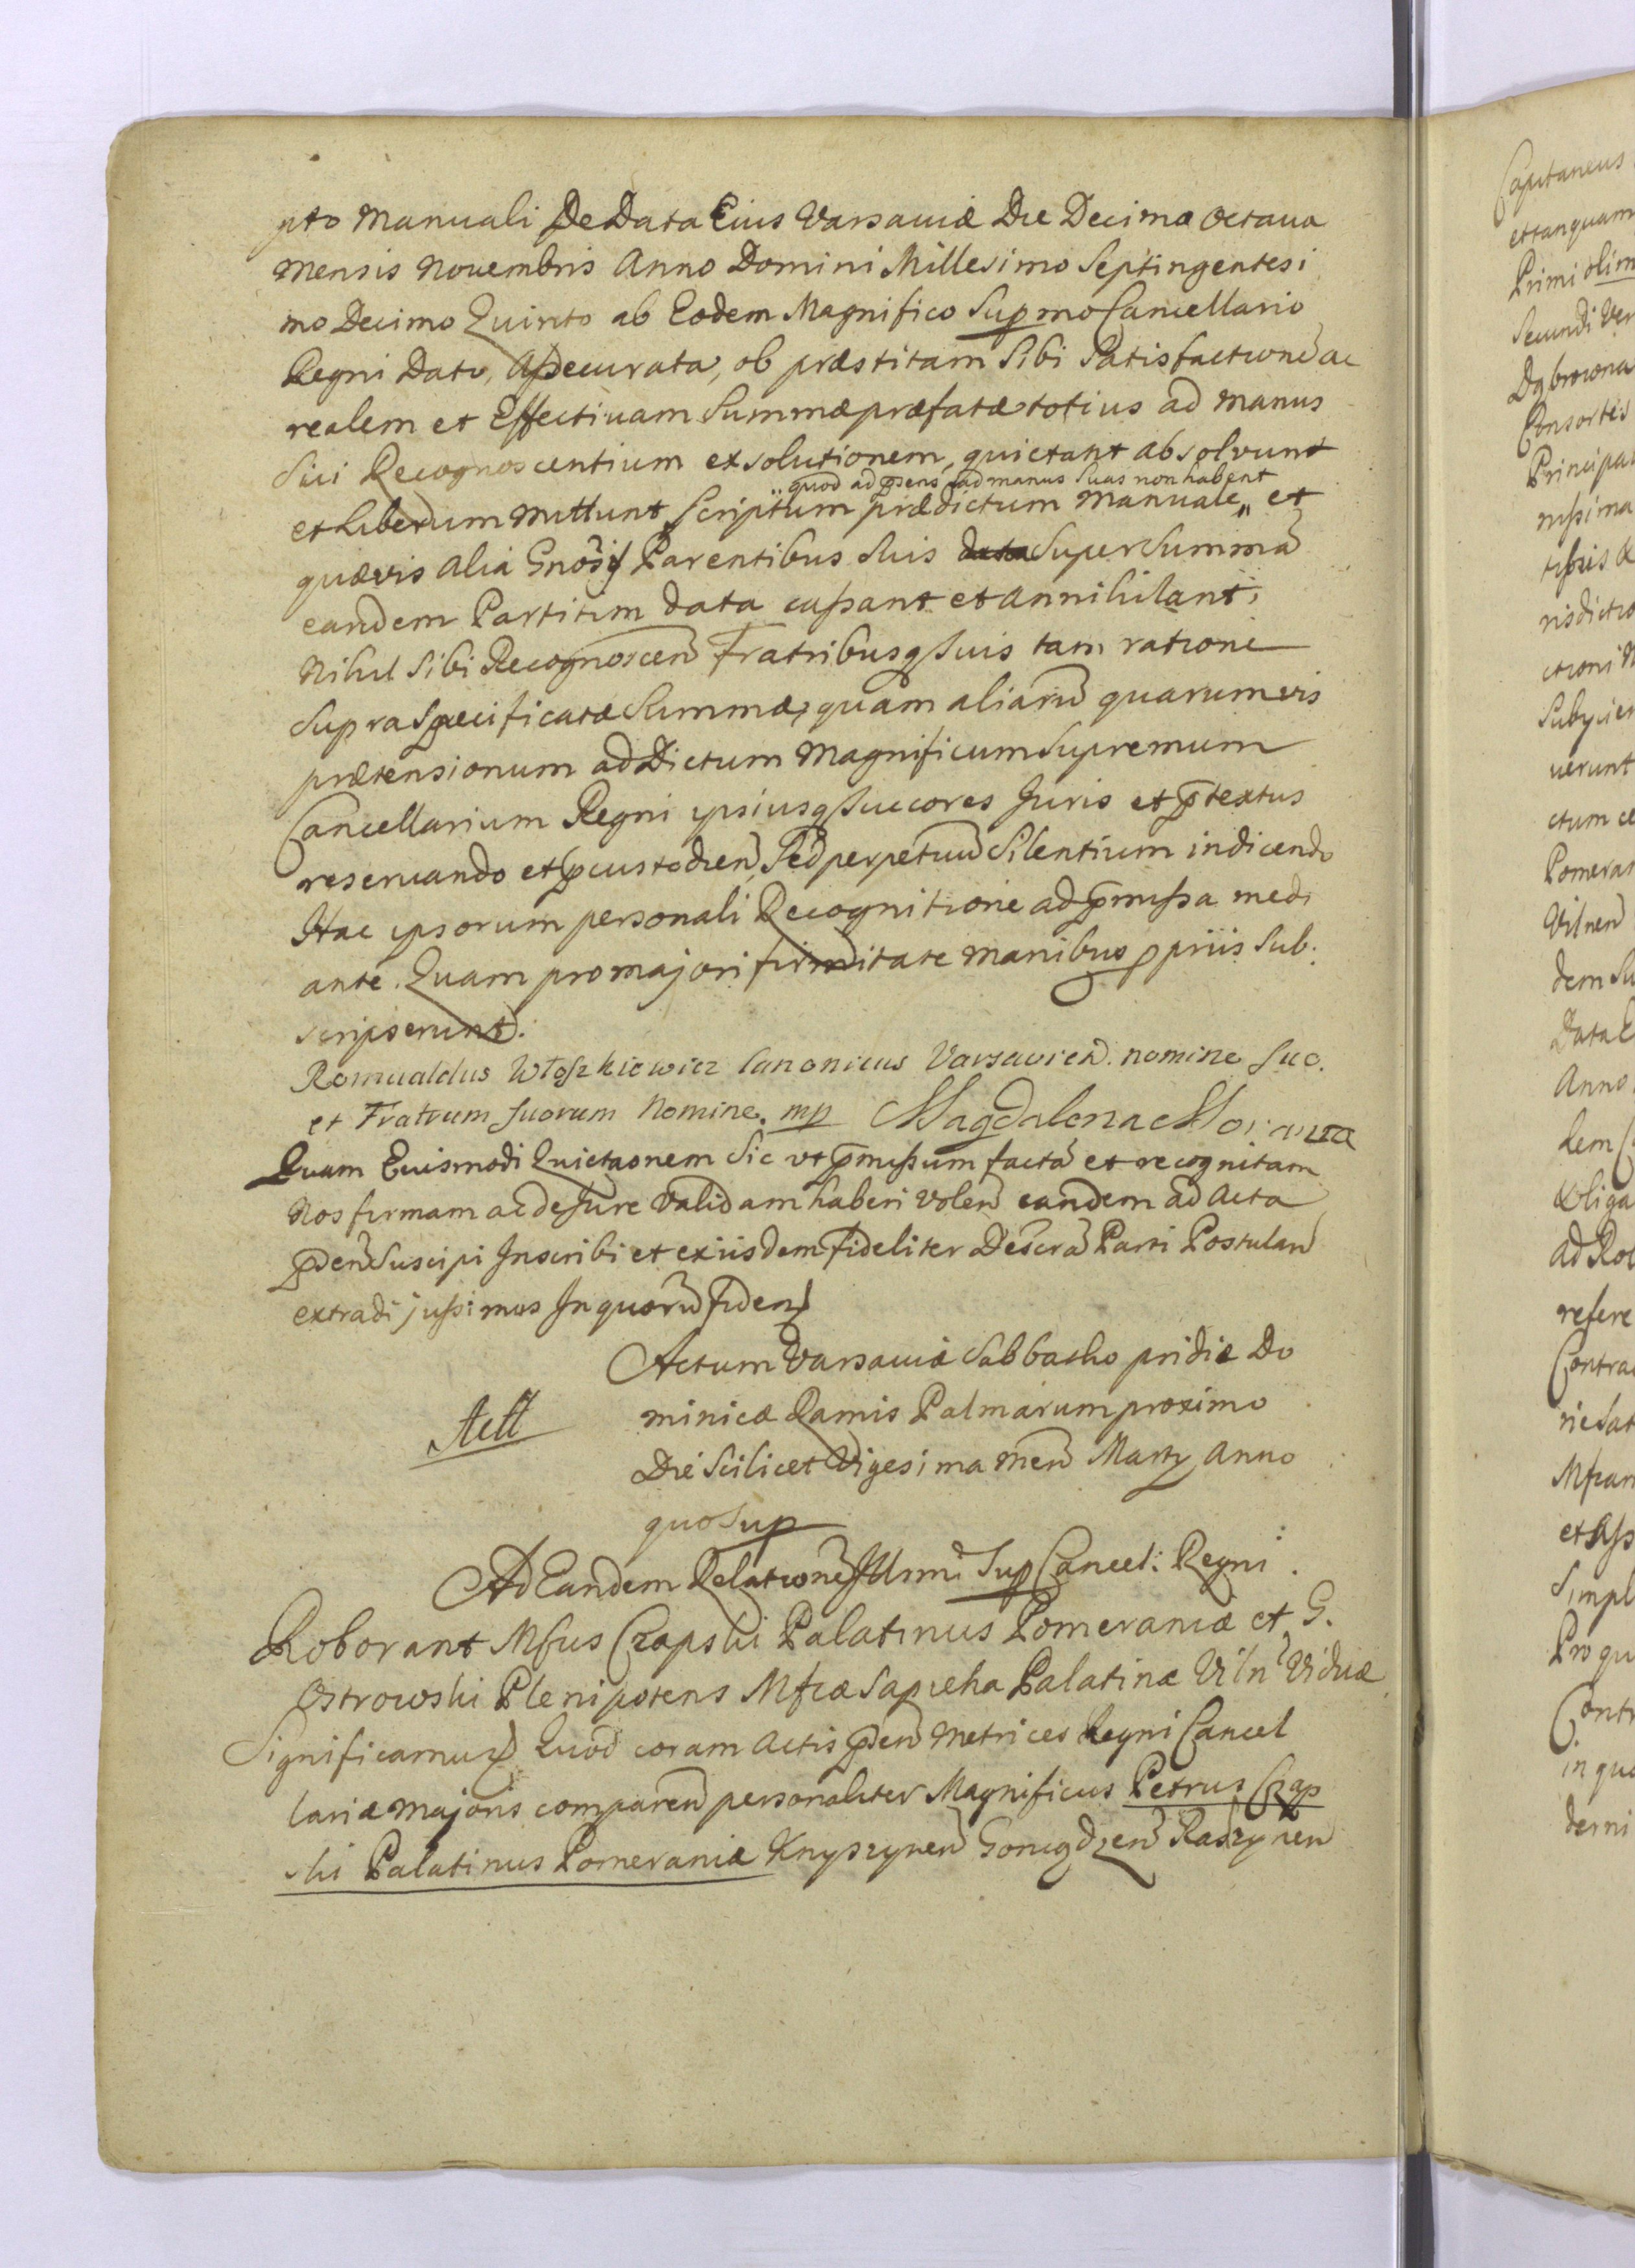 pto Manuali De Data Eius Varsaviæ Die Decima Octava
Mensis Novembris Anno Domini Millesimo Septingentesi
mo Decimo Quinto ab Eodem Magnifico Supmo Cancellario
Regni Dato, Assecurata, ob præstitam Sibi Satisfactione ac
realem et Effectivam Summæ præfatæ totius ad manus
Sui Recognoscentium exsolutionem, quietant absolvunt
„ quod ad pñsens ad manus Suas non habent
et Liberum mittunt Scriptum prædictum Manuale „ et
quævis alia Gnosis Parentibus Suis data Super Summã
eandem Partitim data cassant et annihilant;
Nihil Sibi Recognoscen̄ Fratribusq Suis tam ratione
Supra Specificatæ Summæ, quam aliarũ quarumvis
prætensionum ad Dictum Magnificum Supremum
Cancellarium Regni ipsiusq Succores Juris et p̄textus
reservando et p̄custodien̄, Sed perpetuũ Silentium indicendo
Hac ipsorum personali Recognitione ad p̄missa medi
ante. Quam pro majori firmitate manibus ppriis Sub:
scripserunt.
Romualdus Canonicus Varsavien̄. nomine suo.
et Fratrum Suorum Nomine. mp Magdalena
Quam Euismodi Quietaonem Sic ut p̄missum factã et recognitam
Nos firmam ac de Jure validam haberi volen̄ eandem ad Acta
p̄sen̄ Suscipi Inscribi et exiisdem Fideliter Descrã Parti Postulan̄
extradi jussimus In quorũ fidem
Actum Varsaviæ Sabbatho pridie Do
minicæ Ramis Palmarum proximo
Actt
Die Scilicet Vigesima Men̄ Martij Anno
quo Sup
Ad Eandem Relatione Illmi Sup Cancel: Regni
Roborant Mfcus Czapski Palatinus Pomeraniæ et G.
Ostrowski Plenipotens Mfcæ Sapieha Palatinæ Viln̄ Viduæ
Significamus Quod coram Actis p̄sen̄ Metrices Regni Cancel
lariæ Majoris comparen̄ personaliter Magnificus Petrus Czap
ski Palatinus Pomeraniæ Knyszynen̄ Goniądzen̄ Raszynen̄
Capitaneus
et tanquam
Primi olim
Secundi
Consortis
Data E
Anno
ad Rob
refere
Contrac
Simpl
Pro qu
Contr
in quo